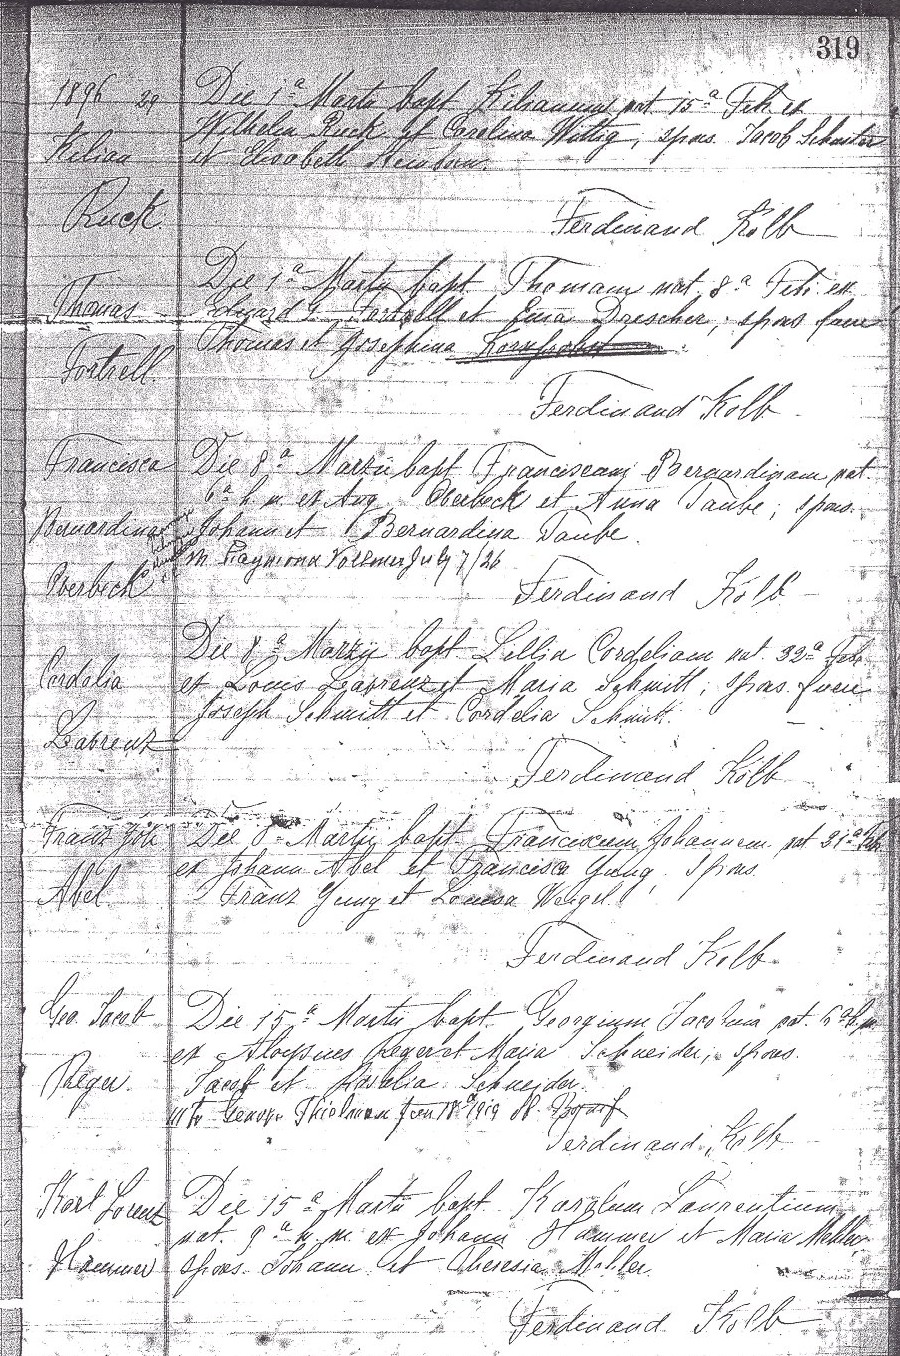 319
1896 29
Kilian
Ruck
Die 1ª Martii bapt Kilianum nat 15ª Feb ex
Wilhelm Ruck et Carolina Wittig, spons. Jacob Schuster
et Elisabeth
Ferdinand Kolb
Thomas
Fortrell
Die 1ª Martii bapt Thomam nat. 8ª Feb. ex
Fortrell et Emma Drescher, spons fuere
Thomas et Josephina
Ferdinand Kolb
Francisca
Bernardina
Overbeck
Die 8ª Martii bapt Franciscam Bernardinam nat.
6ª h. m. et Aug Overbeck et Anna Taube, spons.
Johann et Bernardina Taube.
M. Raymond Vollmer July 7/26
Ferdinand Kolb
Cordelia
Labrenz
Die 8ª Martii bapt Lillia Cordeliam nat. 22ª Feb
et Louis Labrenz et Maria Schmitt, spons fuere
Joseph Schmitt et Cordelia Schmitt.
Ferdinand Kolb
Franz Joh
Abel
Die 8ª Martii bapt. Franciscum Johannem nat 21ª Feb
ex Johann Abel et Francisca Yung, Spons.
Franz Yung et Louisa
Ferdinand Kolb.
Geo. Jacob
Reger.
Die 15ª Martii bapt. Georgium Jacobum nat. 6ª h. m.
ex Aloysius Reger et Maria Schneider, spons.
Jacob et Rosalia Schneider.
M to Thielman 1919
Ferdinand Kolb
Karl Lorenz
Hammer
Die 15ª Martii bapt. Karolum Laurentium
nat. 9ª h. m. ex Johann Hammer et Maria Mehler
spons. Johann et Theresia Mehler.
Ferdinand Kolb